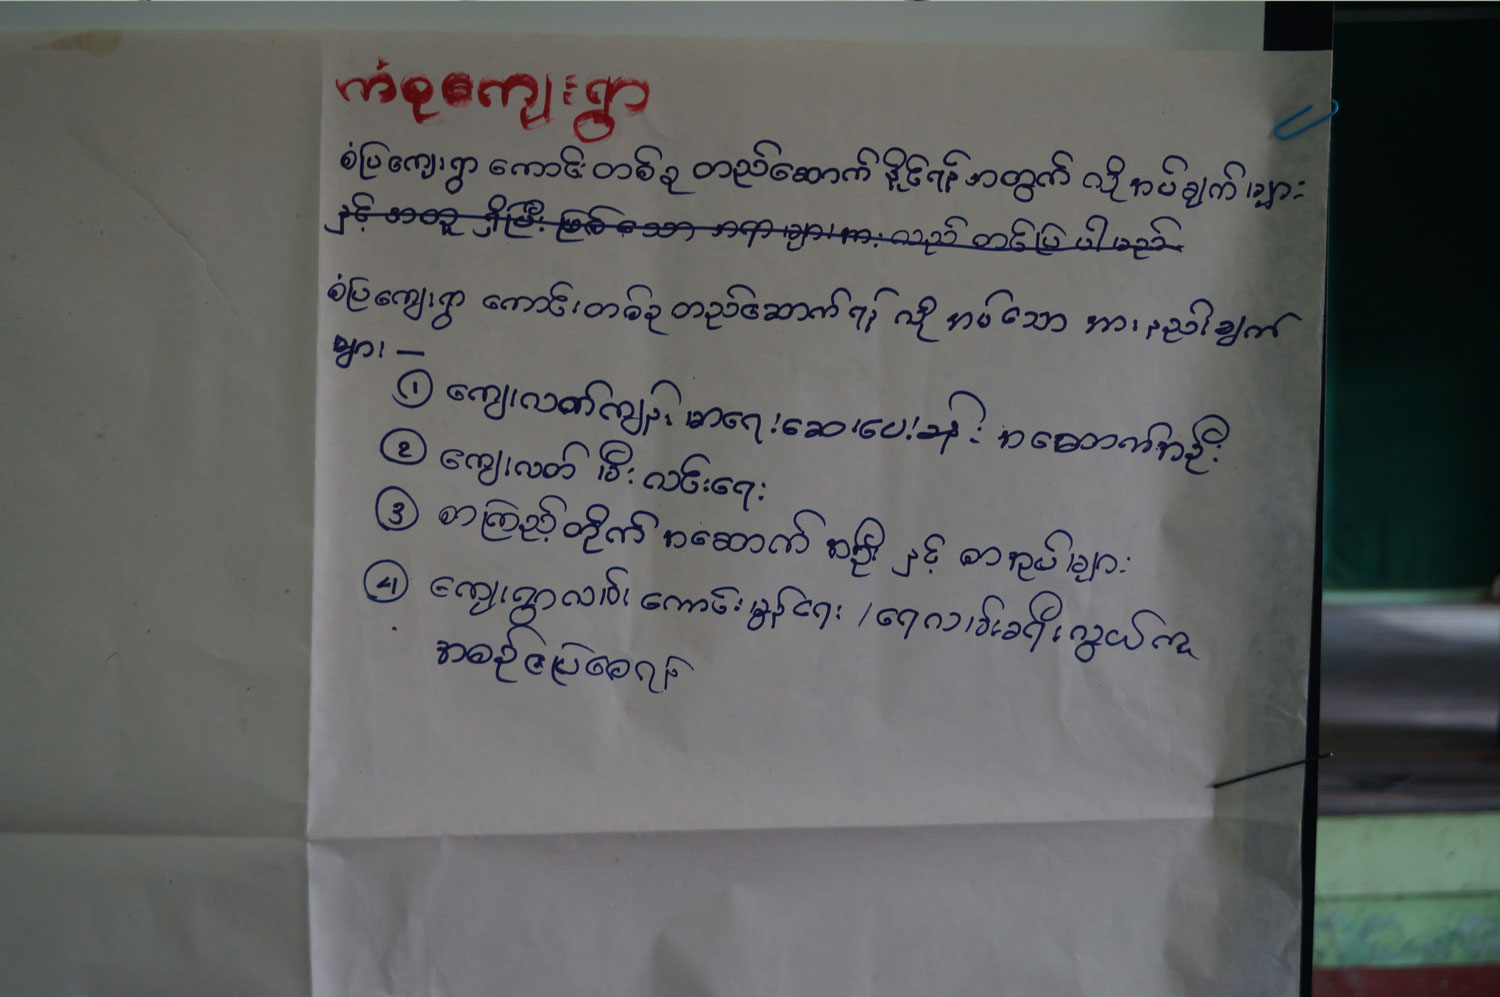 ကံစုကျေးရွာ
စံပြကျေးရွာ ကောင်းတစ်ခု တည်ဆောက် နိုင်ရန် အတွက် လိုအပ်ချက်များ
နှင့် အတူ ရှိပြီး ဖြစ်သော အရာများအား လည် တင်ပြ ပါမည်
စံပြကျေးရွာ ကောင်းတစ်ခု တည်ဆောက်ရန် လိုအပ်သော အားနည်းချက်
များ —
၁ ကျေးလက်ကျန်းမာရေးဆေးပေးခန်း အဆောက်အဦး
၂ ကျေးလက် မီးလင်းရေး
၃ စာကြည့်တိုက် အဆောက်အဦး နှင့် စာအုပ်များ
၄ ကျေးရွာလမ်း ကောင်းမွန်ရေး / ရေလမ်းခရီးလွယ်ကူ
အစဉ်ပြေစေရန်